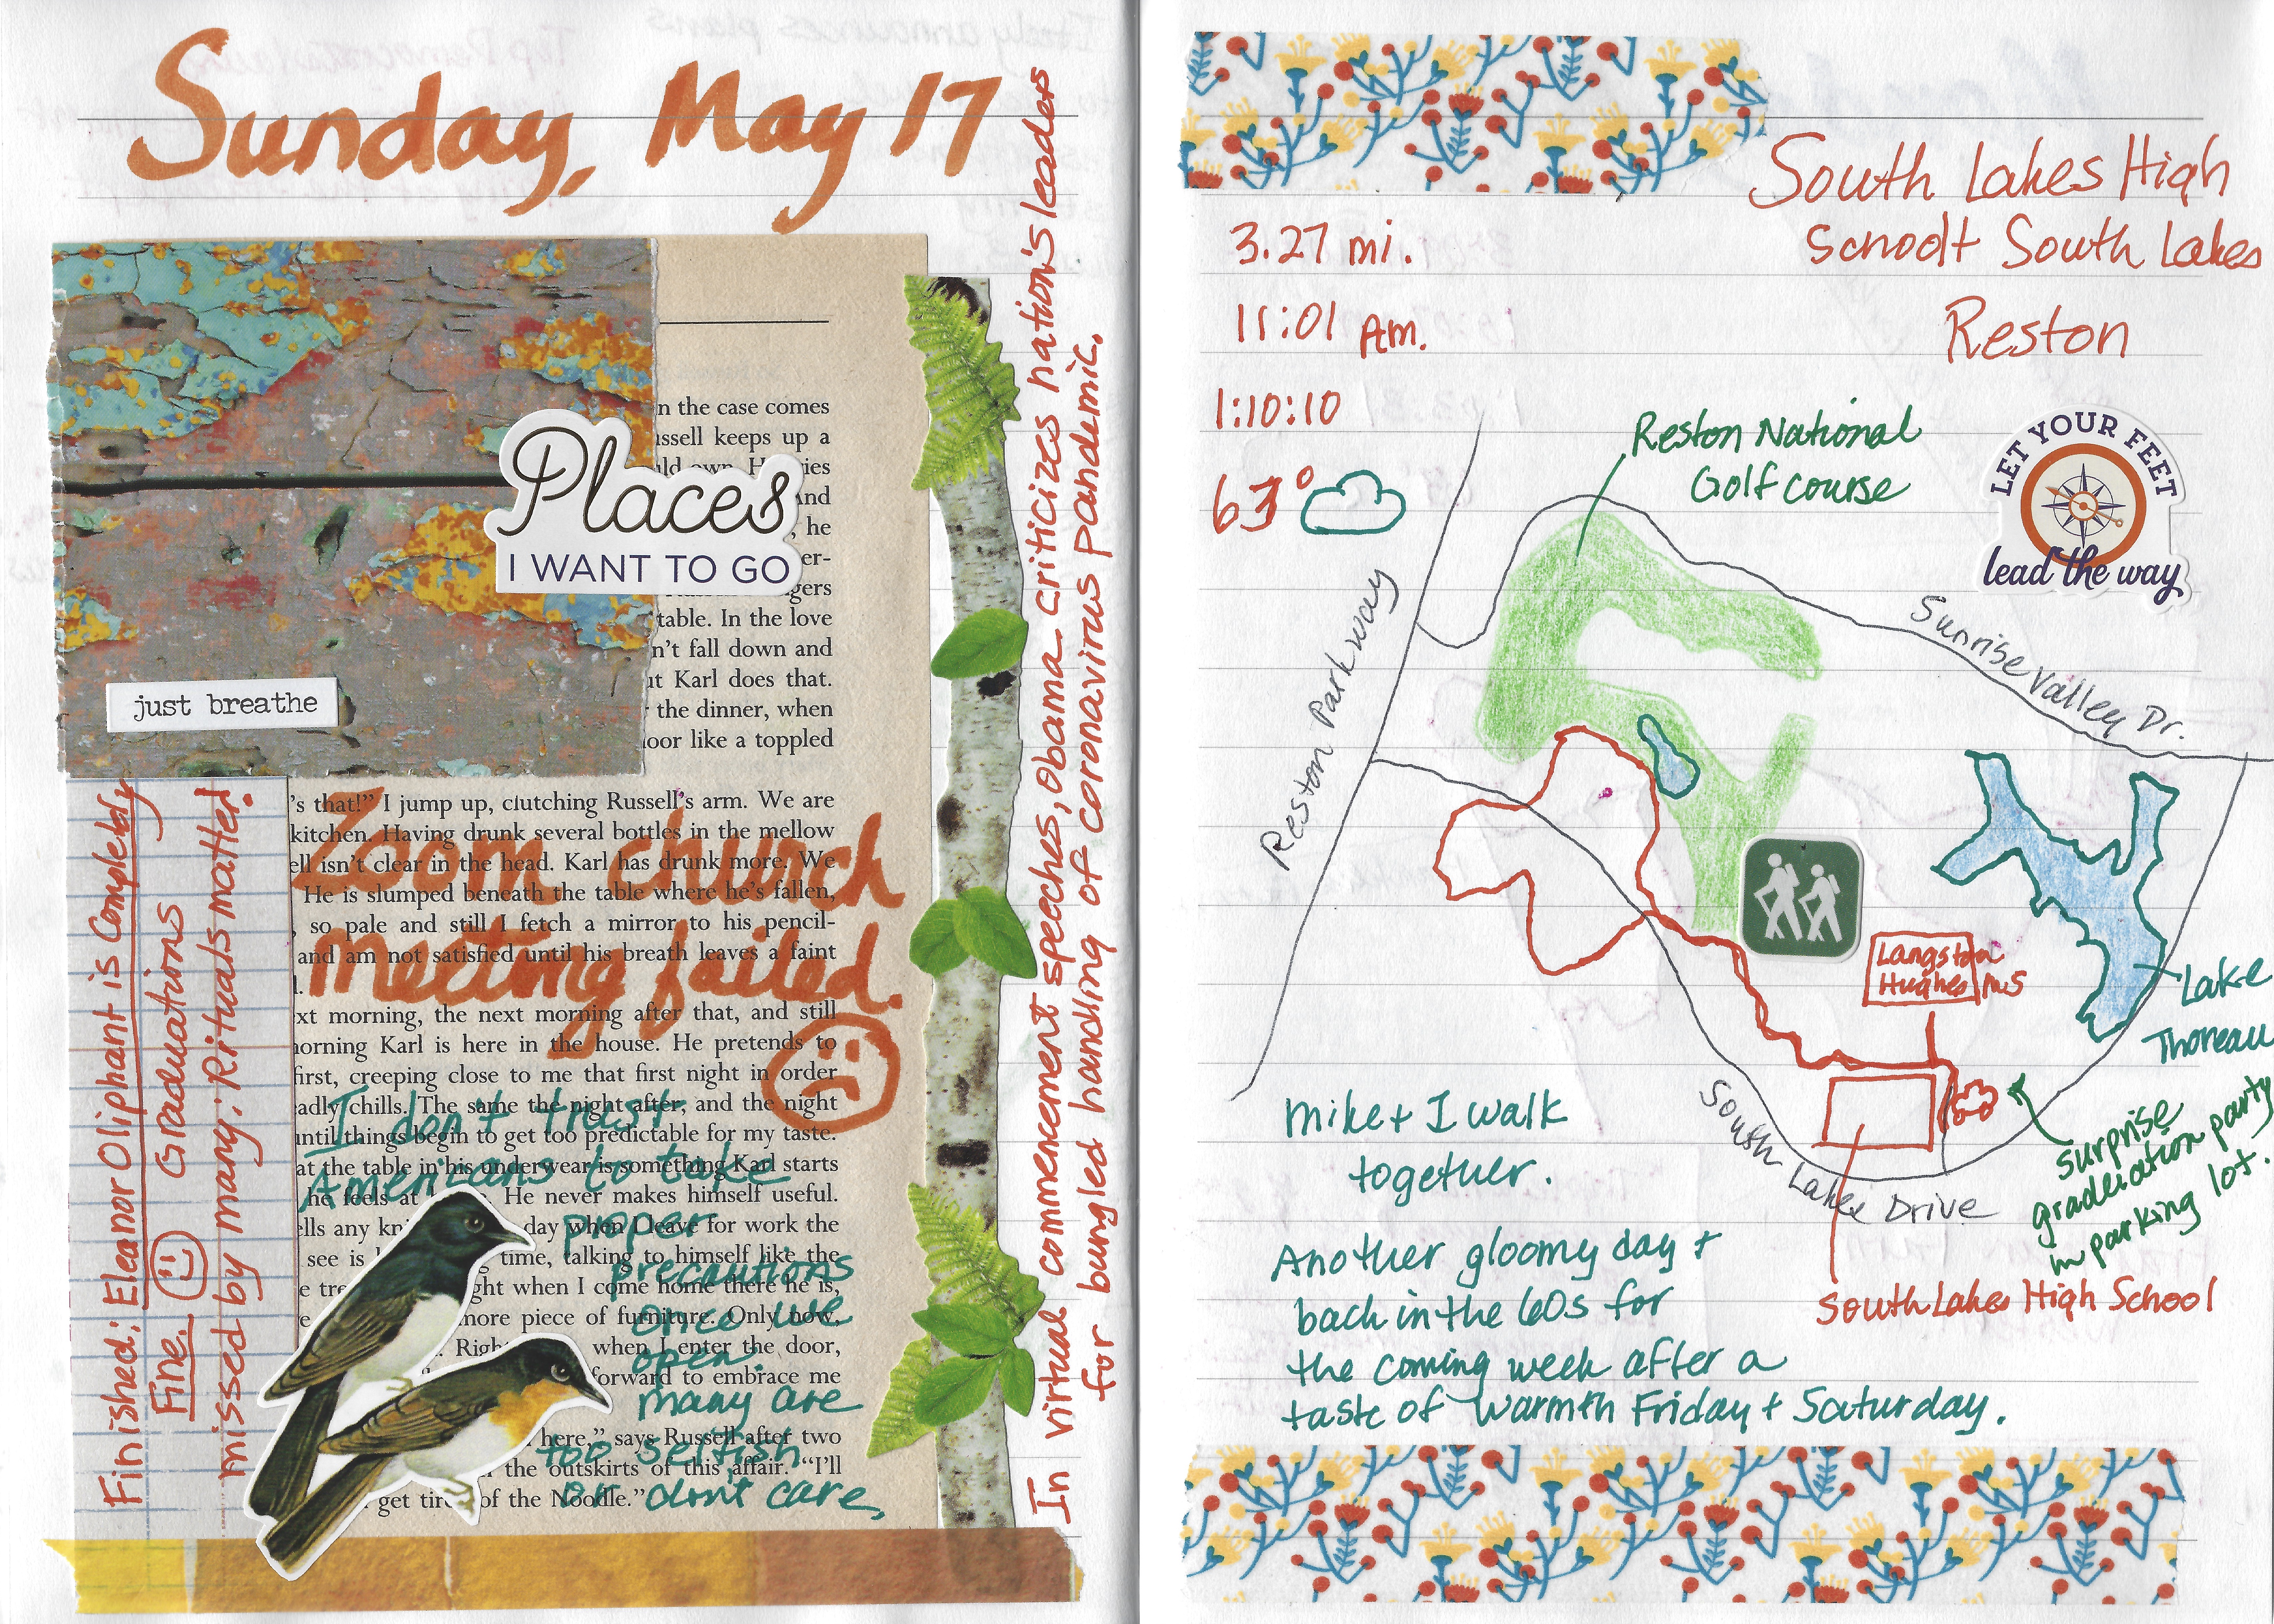 Sunday, May 17
Places
I WANT TO GO
just breathe
n the case comes
ussell keeps up a
uld own. H ies
And
, he
er-
gers
table. In the love
n't fall down and
ut Karl does that.
the dinner, when
oor like a toppled
's that!" I jump up, clutching Russell's arm. We are
kitchen. Having drunk several bottles in the mellow
ell isn't clear in the head. Karl has drunk more. We
He is slumped beneath the table where he's fallen,
, so pale and still I fetch a mirror to his pencil-
and am not satisfied until his breath leaves a faint
l.
xt morning, the next morning after that, and still
norning Karl is here in the house. He pretends to
first, creeping close to me that first night in order
eadly chills. The same the night after, and the night
until things begin to get too predictable for my taste.
at the table in his underwear is something Karl starts
he feels at He never makes himself useful.
ells any kni day when I leave for work the
see is time, talking to himself like the
e tre ght when I come home there he is,
more piece of furniture. Only now,
. Righ when I enter the door,
forward to embrace me
here," says Russell after two
the outskirts of this affair. "I'll
get tir of the Noodle."
Zoom church
meeting failed.
I don't trust
Americans to take
proper
precautions
once we
open.
many are
too selfish
or don't care.
Finished: Eleanor Oliphant is Completely
Fine. Graduations
missed by many: Rituals matter!
In virtual commencement speeches, Obama criticizes nation's leaders
for bungled handling of coronavirus pandemic.
South Lakes High
School + South Lakes
Reston
3.27 mi.
11:01 Am.
1:10:10
63°
Reston National
Golf course
LET YOUR FEET
lead the way
Reston Parkway
Sunrise Valley Dr.
Langston
Hughes MS
Lake
Thoreau
South Lakes Drive
surprise
graduation party
in parking lot.
South Lakes High School
Mike + I walk
together.
Another gloomy day +
back in the 60s for
the coming week after a
taste of warmth Friday + Saturday.